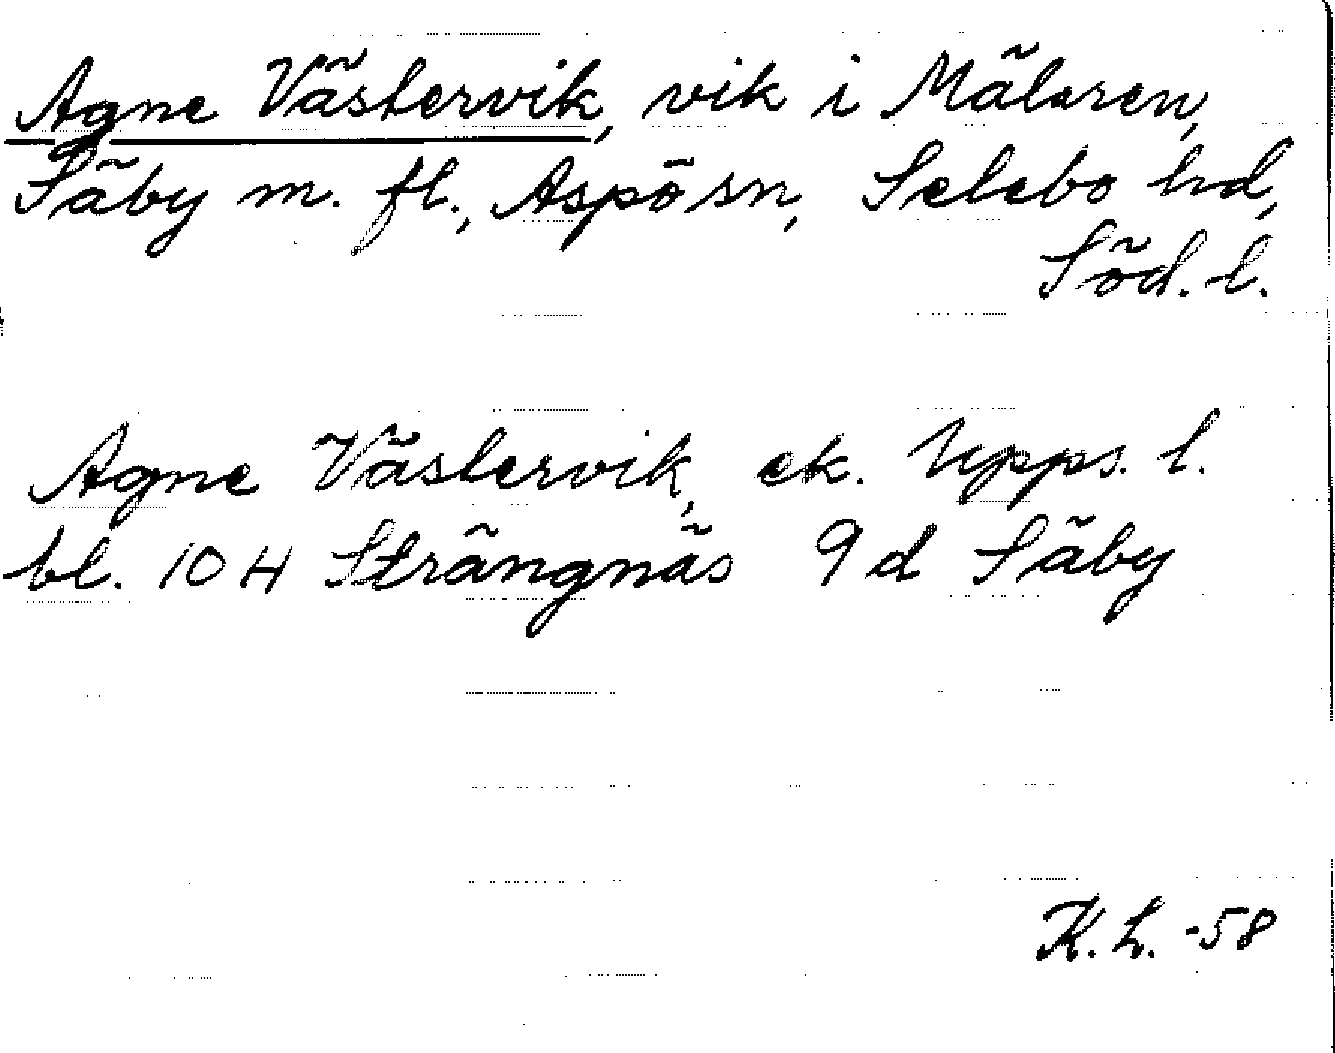 Agne Västervik, vik i Mälaren,
Säby m. fl., Aspö sn, Selebo hd,
Söd. l.
Agne Västervik, ek. Upps. l.
bl. 10 H Strängnäs 9 d Säby
K. L. -58